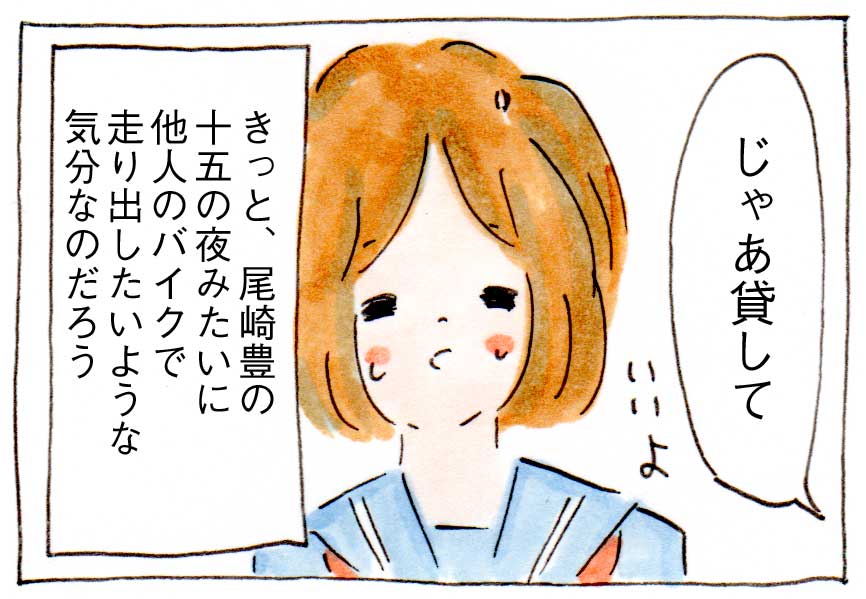 じゃあ貸して
いいよ
きっと、尾崎豊の
十五の夜みたいに
他人のバイクで
走り出したいような
気分なのだろう